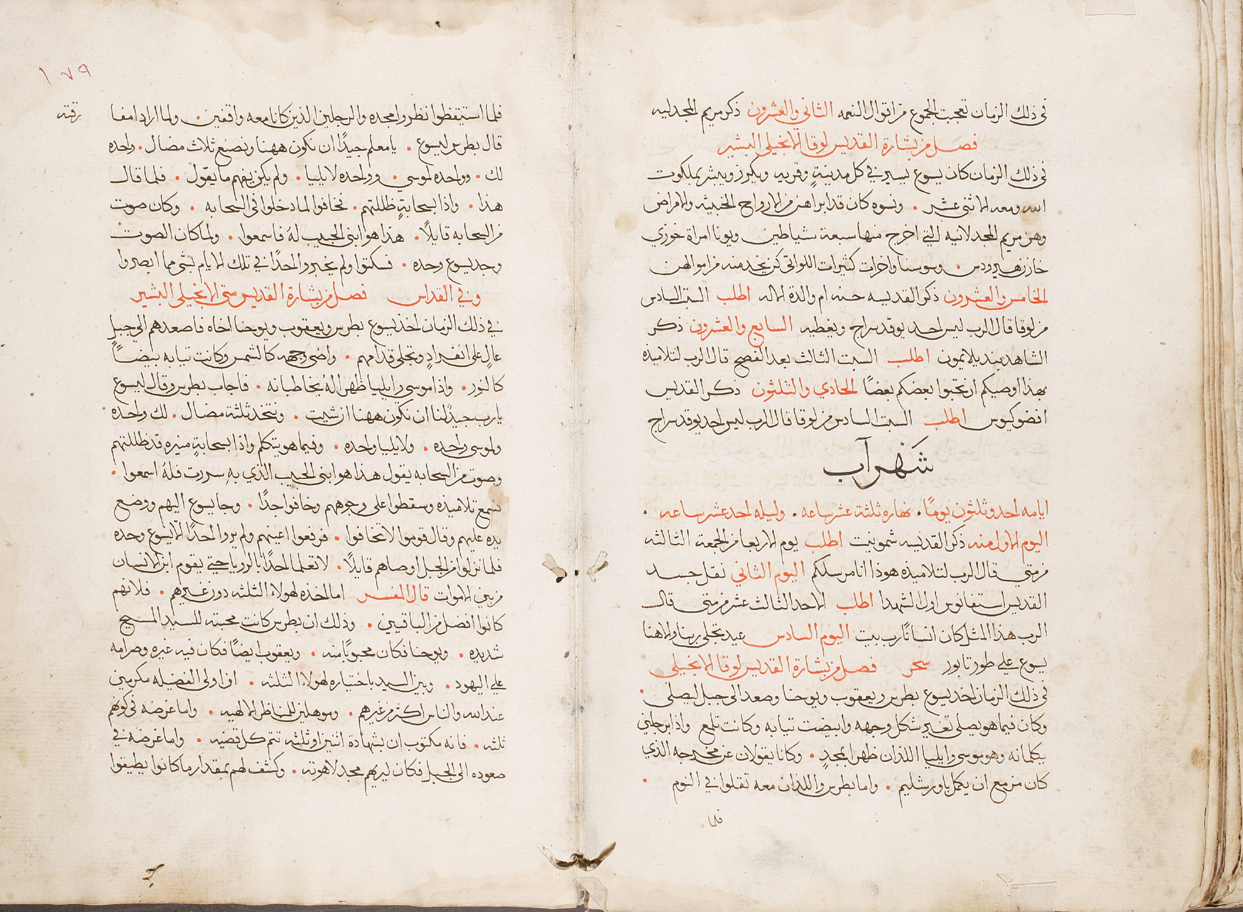 في ذلك الزمان تعجبت الجموع من اقوال النعمه الثاني والعشرون ذكر مريم المجدليه
فصل من بشارة القديس لوقا الانجيلي البشير
في ذلك الزمان كان يسوع يسير في كل مدينةٍ وقريه ويكرز ويبشر بملكوت
الله ومعه الاثني عشر • ونسوه كان قد ابراهن من الارواح الخبيثه والامراض
وهن مريم المجدلانيه التي اخرج منها سبعة شياطين ويونا امراة خوزي
خازن هيرودس • وسوسنا واخرات كثيرات اللواتي كن يخدمنه من اموالهن
الخامس والعشرون ذكر القديسه حنه ام والدة الاله اطلب السبت السادس
من لوقا قال الرب ليس احد يوقد سراج ويغطيه السابع والعشرون ذكر
الشاهد بنديلايمون اطلب السبت الثالث بعد الفصح قال الرب لتلاميذه
بهذا اوصيكم ان تحبوا بعضكم بعضًا الحادي والثلثون ذكر القديس
افضوكيوس اطلب السبت السادس من لوقا قال الرب ليس احد يوقد سراج
شهر آب
ايامه احد وثلثون يومًا • نهاره ثلثة عشر ساعه • وليله احد عشر ساعه •
اليوم الاول منه ذكر القديسه شمونيت اطلب يوم الاربعا من الجمعة الثالثه
من متى قال الرب لتلاميذه هوذا انا مرسلكم اليوم الثاني نقل جسد
القديس استفانوس اول الشهدا اطلب الاحد الثالث عشر من متى قال
الرب هذا المثل كان انسانًا رب بيت اليوم السادس عيد تجلي ربنا والاهنا
يسوع على طور تابور سحر فصل من بشارة القديس لوقا الانجيلي
في ذلك الزمان اخذ يسوع بطرس ويعقوب ويوحنا وصعد الى جبل ليصلي •
وكان فيما هو يصلي تغير شكل وجهه وابيضت تيابه وكانت تلمع واذا برجلين
يكلمانه وهو موسى وايليا اللذان ظهرا بمجدٍ • وكانا يقولان عن مخرجه الذي
كان مزمع ان يكمل باورشليم • واما بطرس واللذان معه تقلوا في النوم •
فلما
١٧٩
فلما استيقظوا نظروا مجده والرجلين الذين كانا معه واقفين • ولما ارادا مفا
رقته
قال بطرس ليسوع • يا معلم جيدًا ان نكون ههنا ونصنع ثلاث مضال • واحده
لك • وواحده لموسى • وواحده لايليا • ولم يكن يفهم ما يقول • فلما قال
هذا • واذا سحابةٍ ظللتهم • فخافوا لما دخلوا في السحابه • وكان صوت
من السحابه قايلًا • هذا هو ابني الحبيب لهُ فاسمعوا • ولما كان الصوت
وجد يسوع وحده • فسكتوا ولم يخبروا احدًا في تلك الايام بشي مما ابصروا
وفي القداس فصل من بشارة القديس متى الانجيلي البشير
في ذلك الزمان اخذ يسوع بطرس ويعقوب ويوحنا اخاه فاصعدهم الى جبلٍ
عالٍ على انفرادٍ وتجلى قدامهم • واضى وجهه كالشمس وكانت تيابه بيضًا
كالنور • واذا موسى وايليا ظهرا لهُ يخاطبانه • فاجاب بطرس وقال ليسوع
يا رب جيدٌ لنا ان نكون ههنا ان شيت • ونتخذ ثلثة مضال • لك واحده
ولموسى واحده • ولايليا واحده • وفيما هو يتكلم واذا سحابةٍ منيره قد ظللتهم
وصوت من السحابه يقول هذا هو ابني الحبيب الذي به سررت فلهُ اسمعوا •
فسمع تلاميذه وسقطوا على وجوههم وخافوا جدًا • وجا يسوع اليهم ووضع
يده عليهم وقال قوموا لا تخافوا • فرفعوا اعينهم ولم يروا احدًا الا يسوع وحده
فلما نزلوا من الجبل اوصاهم قايلًا • لا تعلموا احدًا بالرويا حتى يقوم ابن الانسان
من بين الاموات قال المفسر اما اخذه لهولا الثلثه دون غيرهم • فلانهم
كانوا افضل من الباقيين • وذلك ان بطرس كانت محبته للسيد المسيح
شديده • ويوحنا فكان محبوبًا منه • ويعقوب ايضًا فكان فيه غيره وصرامه
على اليهود • وبين السيد باختياره لهولا الثلثه • ان اولى الفضيله مكرمين
عند الله والناس اكثر من غيرهم • وموهلين للمناظر الالهيه • واما غرضه في كونهم
ثلثه • فانه مكتوب ان بشهادة اثنين او ثلثه تتم كل قضيه • واما غرضه في
صعوده الى الجبل فكان ليريهم مجد لاهوته • وكشف لهم بمقدار ما كانوا يطيقوا